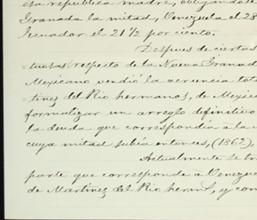 esa republica madre, obligandose
Granada la mitad, Venezuela el 28
Ecuador el 21½ por ciento.
Despues de ciertas
respecto de la Nueva Granada
Mexicano vendió la acrencia tot
tinez del Rio hermanos, de Mexico
formalizar un arreglo definitivo
la deuda que correspondia a la
cuya mitad subia entonces, (1862),
Actualmente se tr
parte que corresponde a Venezue
de Martinez del Rio herms, y con